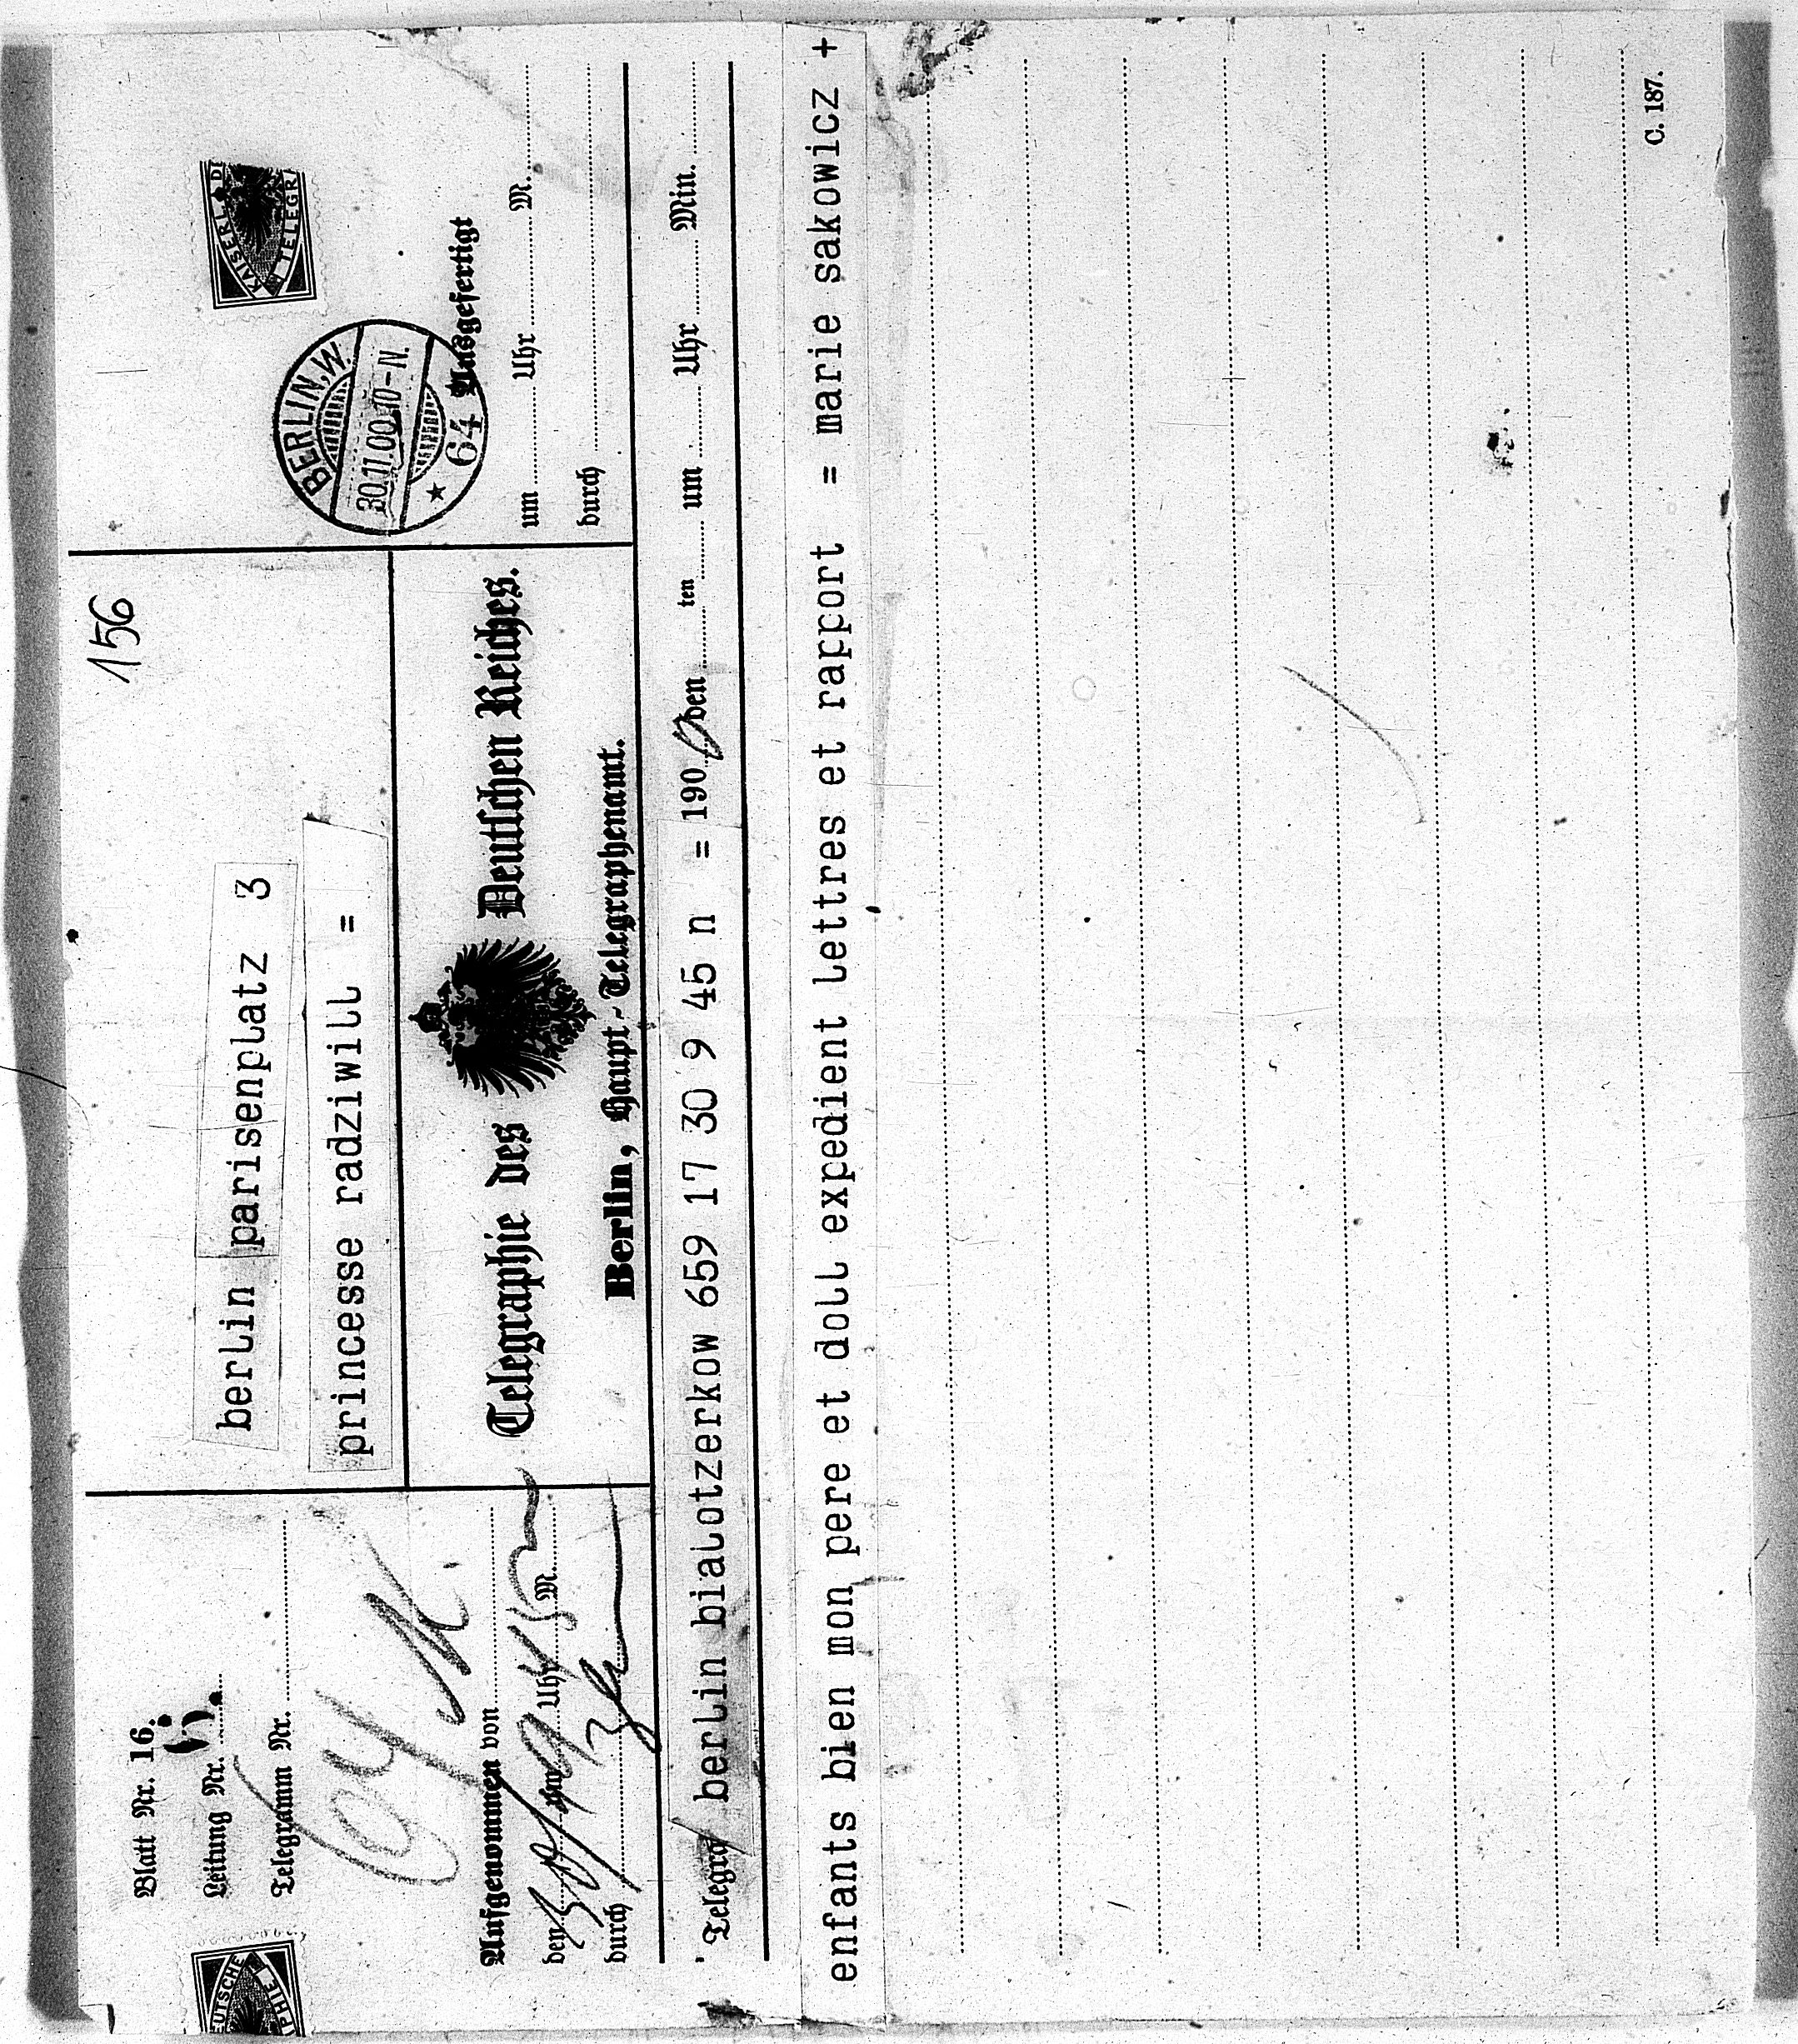 156
Blatt Nr. 16.
Leitung Nr.
Telegramm Nr.
Aufgenommen von
den 9 Uhr 45 M.
durch
berlin parisenplatz 3
princesse radziwill =
Telegraphie des Deutschen Reiches.
Berlin, Haupt-Telegraphenamt.
KAISERL. D
TELEGR
EUTSCHE
PHIE
BERLIN, W.
30.11.00.10-N.
* 64
Ausgefertigt
um Uhr M.
durch
Telegra berlin bialotzerkow 659 17 30 9 45 n = 1900 den ten um Uhr Min.
enfants bien mon pere et doll expedient lettres et rapport = marie sakowicz +
C. 187.